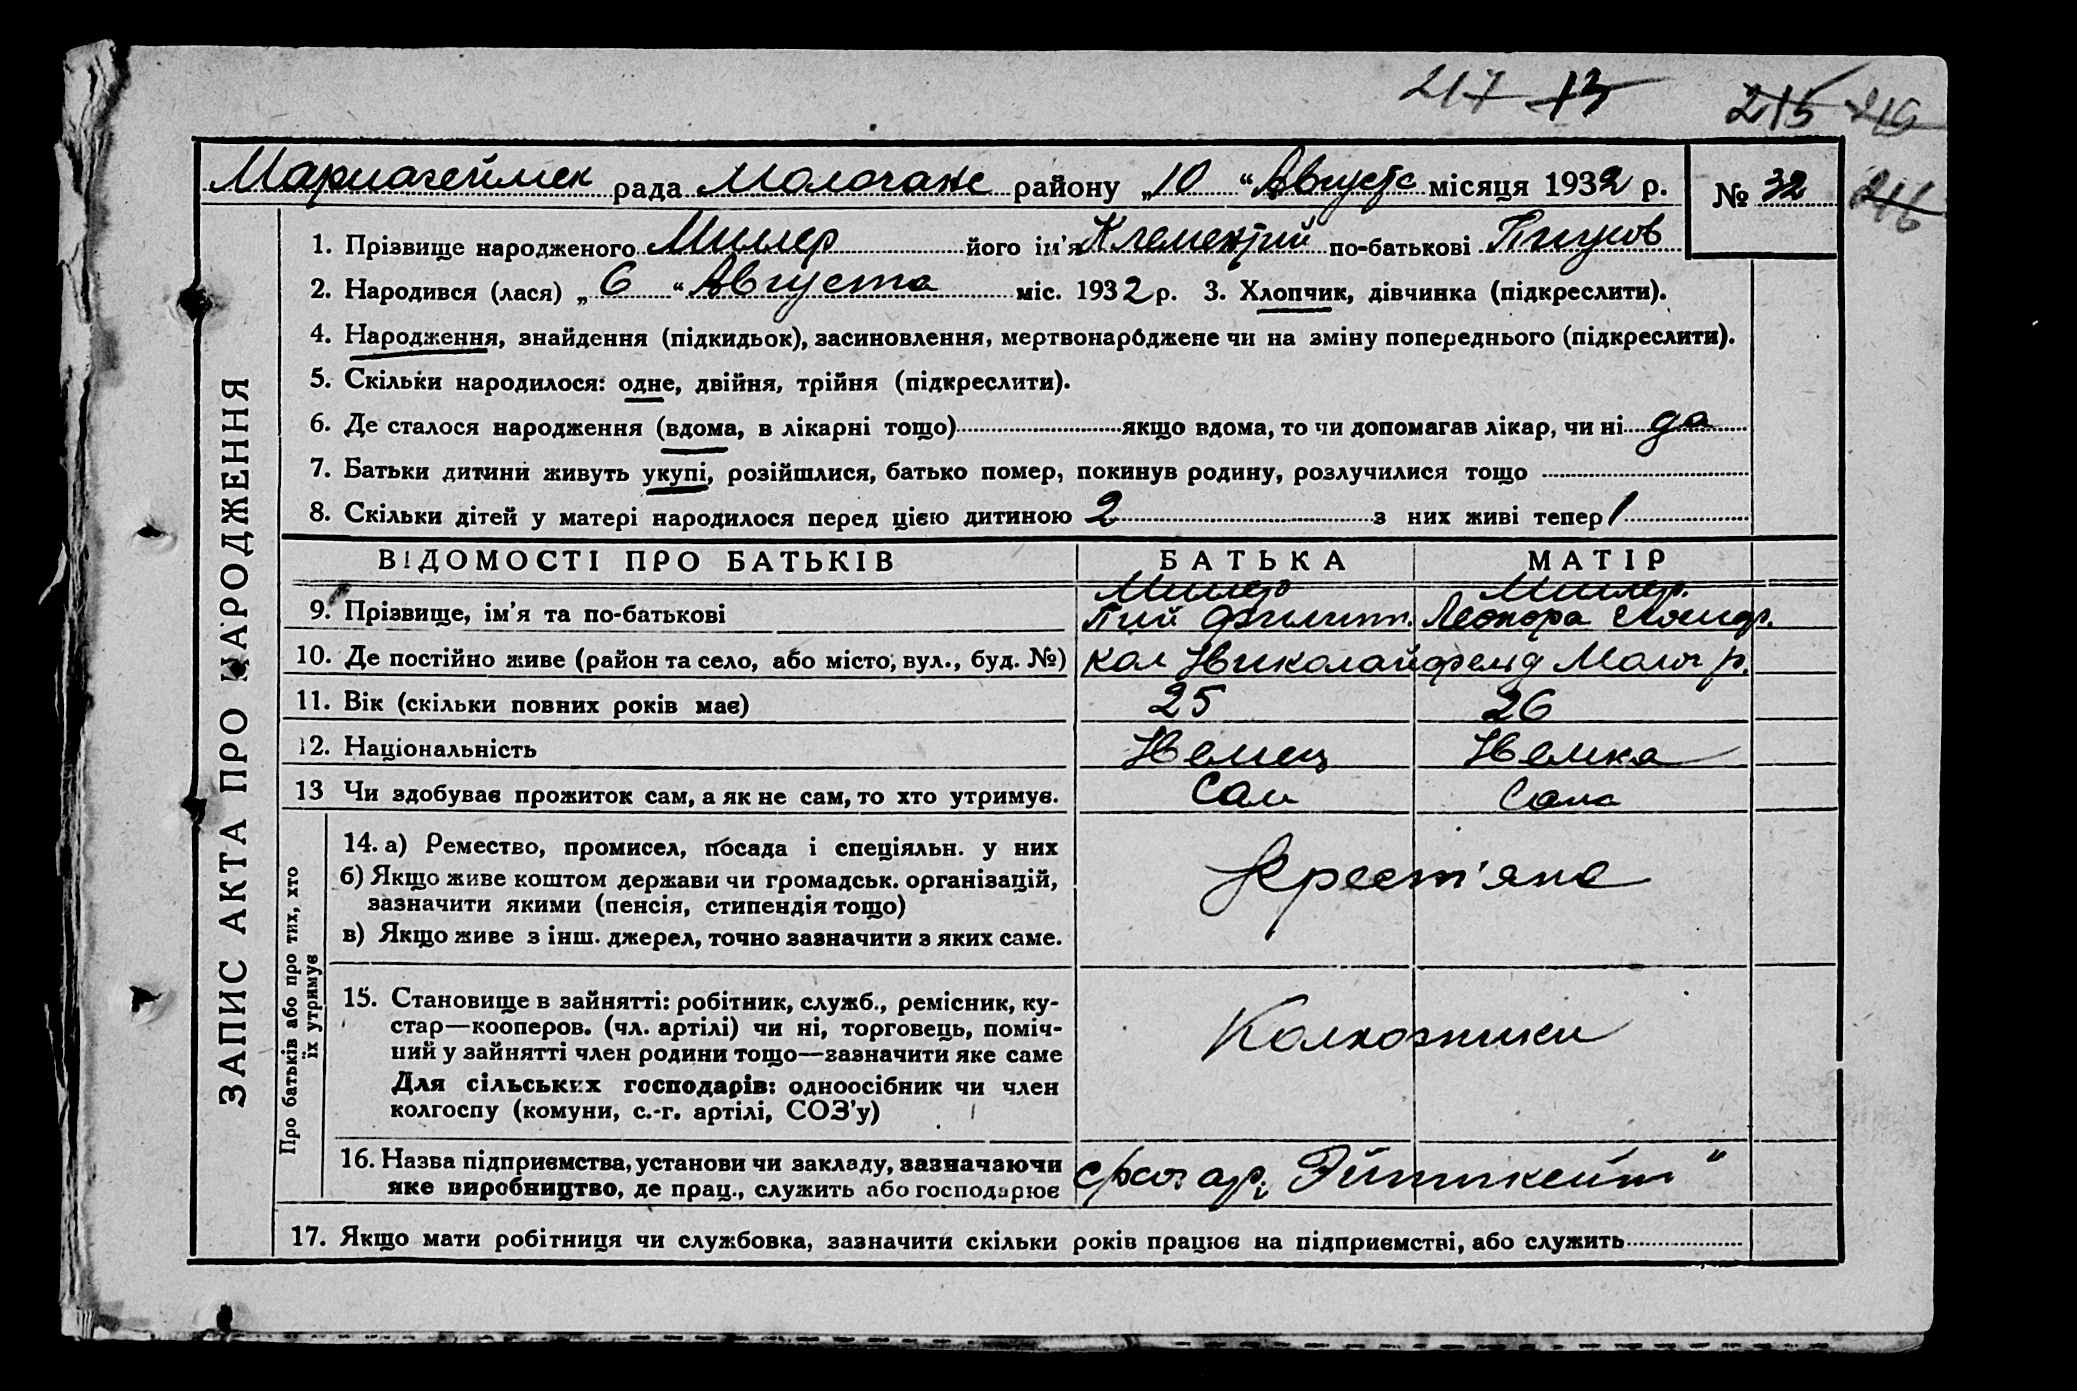 217 13 215 216
216
Мариагеймск рада Молочанс району „10“ Августа місяця 1932 р. № 32
1. Прізвище народженого Миллер його ім'я Клементий по-батькові Пиусов
2. Народився (лася) „6“ Августа міс. 1932 р. 3. Хлопчик, дівчинка (підкреслити).
4. Народження, знайдення (підкидьок), засиновлення, мертвонароджене чи на зміну попереднього (підкреслити).
5. Скільки народилося: одне, двійня, трійня (підкреслити).
6. Де сталося народження (вдома, в лікарні тощо) якщо вдома, то чи допомагав лікар, чи ні да
7. Батьки дитини живуть укупі, розійшлися, батько помер, покинув родину, розлучилися тощо
8. Скільки дітей у матері народилося перед цією дитиною 2 з них живі тепер 1
ЗАПИС АКТА ПРО НАРОДЖЕННЯ
ВІДОМОСТІ ПРО БАТЬКІВ БАТЬКА МАТІР
Миллер Миллер
9. Прізвище, ім'я та по-батькові Пий Филипп. Леонора
10. Де постійно живе (район та село, або місто, вул., буд. №) кол Николайфельд Молоч р.
11. Вік (скільки повних років має) 25 26
12. Національність Немец Немка
13 Чи здобуває прожиток сам, а як не сам, то хто утримує. Сам Сама
Про батьків або про тих, хто
їх утримує
14. а) Ремество, промисел, посада і спеціяльн. у них
б) Якщо живе коштом держави чи громадськ. організацій,
зазначити якими (пенсія, стипендія тощо)
в) Якщо живе з інш. джерел, точно зазначити з яких саме.
Крест'яне
15. Становище в зайнятті: робітник, служб., ремісник, ку-
стар—кооперов. (чл. артілі) чи ні, торговець, поміч-
ний у зайнятті член родини тощо—зазначити яке саме
Для сільських господарів: одноосібник чи член
колгоспу (комуни, с.-г. артілі, СОЗ'у)
Колхозники
16. Назва підприємства, установи чи закладу, зазначаючи
яке виробництво, де прац., служить або господарює
17. Якщо мати робітниця чи службовка, зазначити скільки років працює на підприємстві, або служить